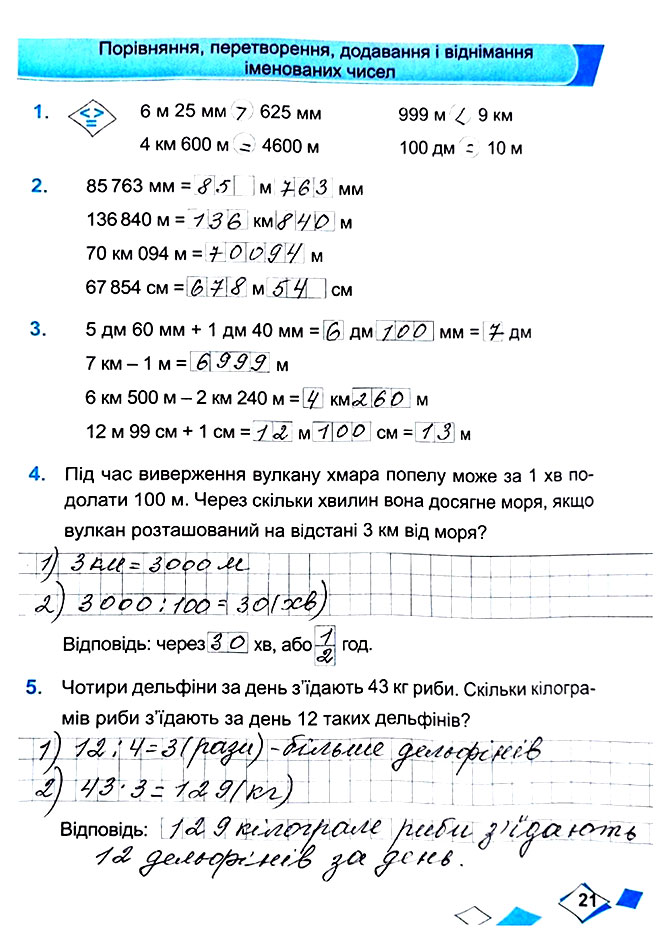 Порівняння, перетворення, додавання і віднімання
іменованих чисел
1. < > = 6 м 25 мм > 625 мм 999 м < 9 км
4 км 600 м = 4600 м 100 дм = 10 м
2. 85 763 мм = 85 м 763 мм
136 840 м = 136 км 840 м
70 км 094 м = 70094 м
67 854 см = 678 м 54 см
3. 5 дм 60 мм + 1 дм 40 мм = 6 дм 100 мм = 7 дм
7 км – 1 м = 6999 м
6 км 500 м – 2 км 240 м = 4 км 260 м
12 м 99 см + 1 см = 12 м 100 см = 13 м
4. Під час виверження вулкану хмара попелу може за 1 хв по-
долати 100 м. Через скільки хвилин вона досягне моря, якщо
вулкан розташований на відстані 3 км від моря?
1) 3 км = 3000 м
2) 3000 : 100 = 30 (хв)
Відповідь: через 30 хв, або 1/2 год.
5. Чотири дельфіни за день з’їдають 43 кг риби. Скільки кілогра-
мів риби з’їдають за день 12 таких дельфінів?
1) 12 : 4 = 3 (рази) - більше дельфінів
2) 43 · 3 = 129 (кг)
Відповідь: 129 кілограм риби з'їдають
12 дельфінів за день.
21